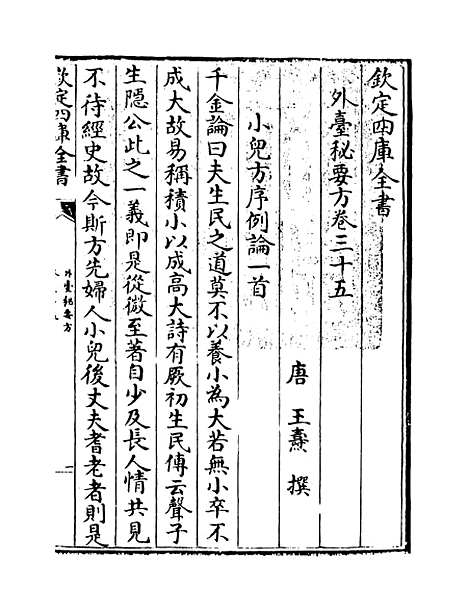 欽定四庫全書
外臺秘要方卷三十五
唐 王燾 撰
小兒方序例論一首
千金論曰夫生民之道莫不以養小為大若無小卒不
成大故易稱積小以成高大詩有厥初生民傳云聲子
生隱公此之一義即是從微至著自少及長人情共見
不待經史故今斯方先婦人小兒後丈夫耆老者則是
欽定四庫全書
外臺秘要方
一